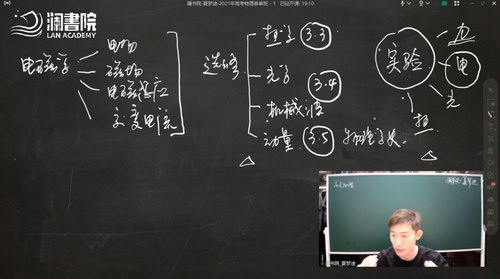 澜書院
LAN ACADEMY
澜书院-夏梦迪-2021年高考物理春季班 - 1 已经开课: 19:10
电磁学
电场
磁场
电磁感应
交变电流
选修
热学 3.3
光学
3.4
机械
动量 3.5 物理学史
实验
力
电
光
热
澜书院_夏梦迪